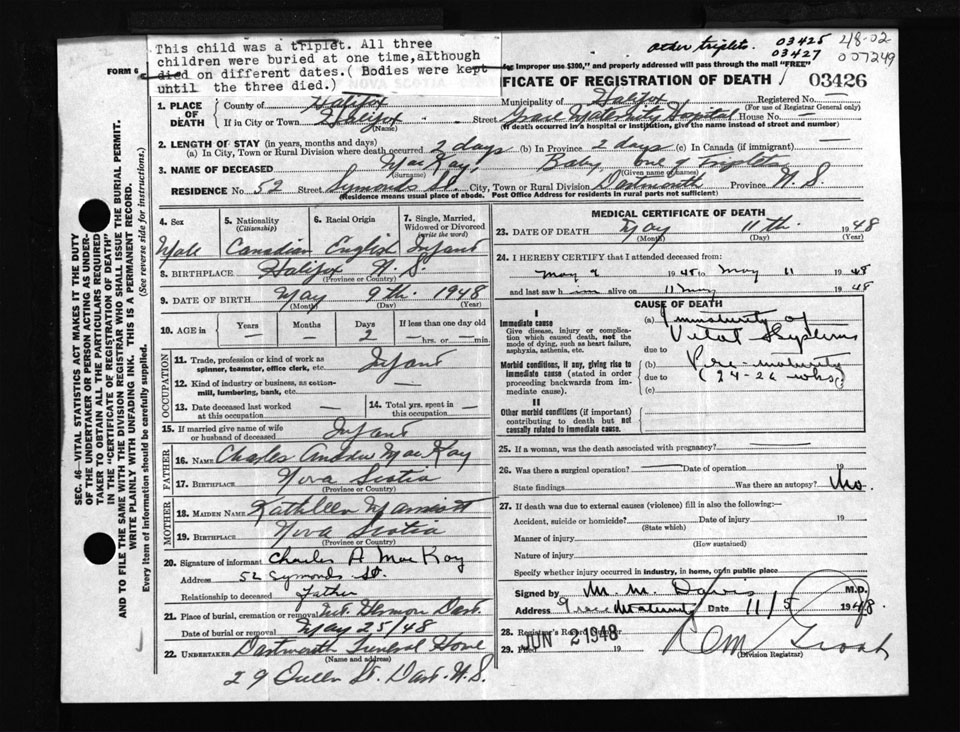 This child was a triplet. All three
children were buried at one time,although
died on different dates.( Bodies were kept
until the three died.)
other triplets. 03425
03427
48-02
007249
FORM 6
for Improper use $300," and properly addressed will pass through the mail "FREE"
NOVA SCOTIA
FICATE OF REGISTRATION OF DEATH
03426
1. PLACE OF DEATH
County of Halifax Municipality of Halifax Registered No. —
(For use of Registrar General only)
If in City or Town Halifax Street Grace Maternity Hospital House No. —
(Name) (If death occurred in a hospital or institution, give the name instead of street and number)
2. LENGTH OF STAY (in years, months and days)
(a) In City, Town or Rural Division where death occurred 2 days (b) In Province 2 days (c) In Canada (if immigrant) —
3. NAME OF DECEASED MacKay, Baby one of Triplets
(Surname) (Given name or names)
RESIDENCE No. 52 Street Symonds St. City, Town or Rural Division Dartmouth Province N. S.
(Residence means usual place of abode. Post Office Address for residents in rural parts not sufficient)
4. Sex
5. Nationality
(Citizenship)
6. Racial Origin
7. Single, Married,
Widowed or Divorced
(write the word)
Male Canadian English Infant
8. BIRTHPLACE Halifax N.S.
(Province or Country)
9. DATE OF BIRTH May 9th 1948
(Month) (Day) (Year)
10. AGE in
Years Months Days If less than one day old
— — 2 — hrs. or — min.
OCCUPATION
11. Trade, profession or kind of work as
spinner, teamster, office clerk, etc. Infant
12. Kind of industry or business, as cotton-
mill, lumbering, bank, etc. —
13. Date deceased last worked
at this occupation —
14. Total yrs. spent in
this occupation —
15. If married give name of wife
or husband of deceased Infant
FATHER
16. NAME Charles Amador MacKay
17. BIRTHPLACE Nova Scotia
(Province or Country)
MOTHER
18. MAIDEN NAME Kathleen Marriott
19. BIRTHPLACE Nova Scotia
(Province or Country)
20. Signature of informant Charles A MacKay
Address 52 Symonds St.
Relationship to deceased Father
21. Place of burial, cremation or removal Mt. Hermon Dart.
Date of burial or removal May 25/48
22. UNDERTAKER Dartmouth Funeral Home
(Name and address)
29 Queen St. Dart. N.S.
MEDICAL CERTIFICATE OF DEATH
23. DATE OF DEATH May 11th. 1948
(Month) (Day) (Year)
24. I HEREBY CERTIFY that I attended deceased from:
May 9 1948 to May 11 1948
and last saw him alive on 11 May 1948
CAUSE OF DEATH
I
Immediate cause
Give disease, injury or complication
which caused death, not the
mode of dying, such as heart failure,
asphyxia, asthenia, etc.
(a) Immaturity of
Vital Systems
due to
Morbid conditions, if any, giving rise to
immediate cause (stated in order
proceeding backwards from immediate
cause)
(b) Pre-maturity
due to (24-26 wks)
(c)
II
Other morbid conditions (if important)
contributing to death but not
causally related to immediate cause.
25. If a woman, was the death associated with pregnancy? —
26. Was there a surgical operation? — Date of operation
State findings Was there an autopsy? No.
27. If death was due to external causes (violence) fill in also the following:—
Accident, suicide or homicide? Date of injury 19
(State which)
Manner of injury
(How sustained)
Nature of injury
Specify whether injury occurred in industry, in home, or in public place
Signed by M. M. Davis M.D.
Address Grace Maternity Date 11/5 1948.
28. Registrar's Record Number
JUN 2 1948
29. Filed 19
(Division Registrar)
SEC. 46—VITAL STATISTICS ACT MAKES IT THE DUTY
OF THE UNDERTAKER OR PERSON ACTING AS UNDER-
TAKER TO OBTAIN ALL THE PARTICULARS REQUIRED
IN THE "CERTIFICATE OF REGISTRATION OF DEATH"
AND TO FILE THE SAME WITH THE DIVISION REGISTRAR WHO SHALL ISSUE THE BURIAL PERMIT.
WRITE PLAINLY WITH UNFADING INK. THIS IS A PERMANENT RECORD.
Every item of Information should be carefully supplied. (See reverse side for instructions.)